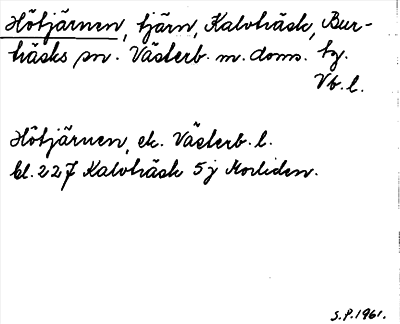 Hötjärnen, tjärn, Kalvträsk, Bur-
träsks sn. Västerb. m. doms. tg.
Vb. l.
Hötjärnen, ek. Västerb. l.
bl. 227 Kalvträsk 5 j Morliden.
S.P. 1961.